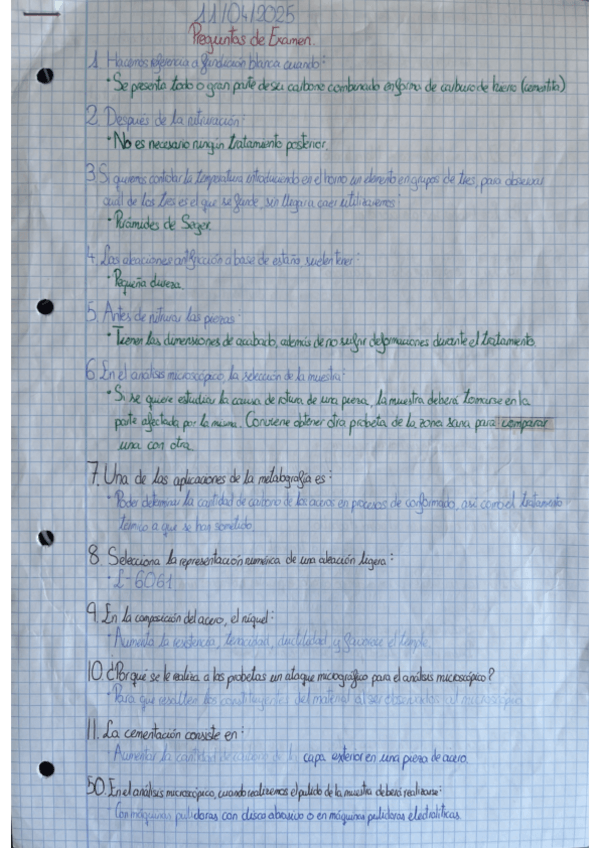 11/04/2025
Preguntas de Examen.
1. Hacemos referencia a fundición blanca cuando:
· Se presenta todo o gran parte de su carbono combinado en forma de carburo de hierro (cementita)
2. Después de la nitruración:
· No es necesario ningún tratamiento posterior.
3. Si queremos controlar la temperatura introduciendo en el horno un elemento en grupos de tres, para observar
cuál de los tres es el que se funde, sin llegar a caer utilizaremos:
· Pirámides de Seger.
4. Las aleaciones antifricción a base de estaño, suelen tener:
· Pequeña dureza.
5. Antes de nitrurar las piezas:
· Tienen las dimensiones de acabado, además de no sufrir deformaciones durante el tratamiento.
6. En el análisis microscópico, la selección de la muestra:
· Si se quiere estudiar la causa de rotura de una pieza, la muestra deberá tomarse en la
parte afectada por la misma. Conviene obtener otra probeta de la zona sana para comparar
una con otra.
7. Una de las aplicaciones de la metalografía es:
· Poder determinar la cantidad de carbono de los aceros en procesos de conformado, así como el tratamiento
térmico a que se han sometido.
8. Selecciona la representación numérica de una aleación ligera:
· L-6061
9. En la composición del acero, el níquel:
· Aumenta la resistencia, tenacidad, ductilidad, y favorece el temple.
10. ¿Por qué se le realiza a las probetas un ataque micrográfico para el análisis microscópico?
· Para que resalten los constituyentes del material al ser observados al microscopio.
11. La cementación consiste en:
· Aumentar la cantidad de carbono de la capa exterior en una pieza de acero.
50. En el análisis microscópico, cuando realizemos el pulido de la muestra deberá realizarse:
Con máquinas pulidoras con disco abrasivo o en máquinas pulidoras electrolíticas.